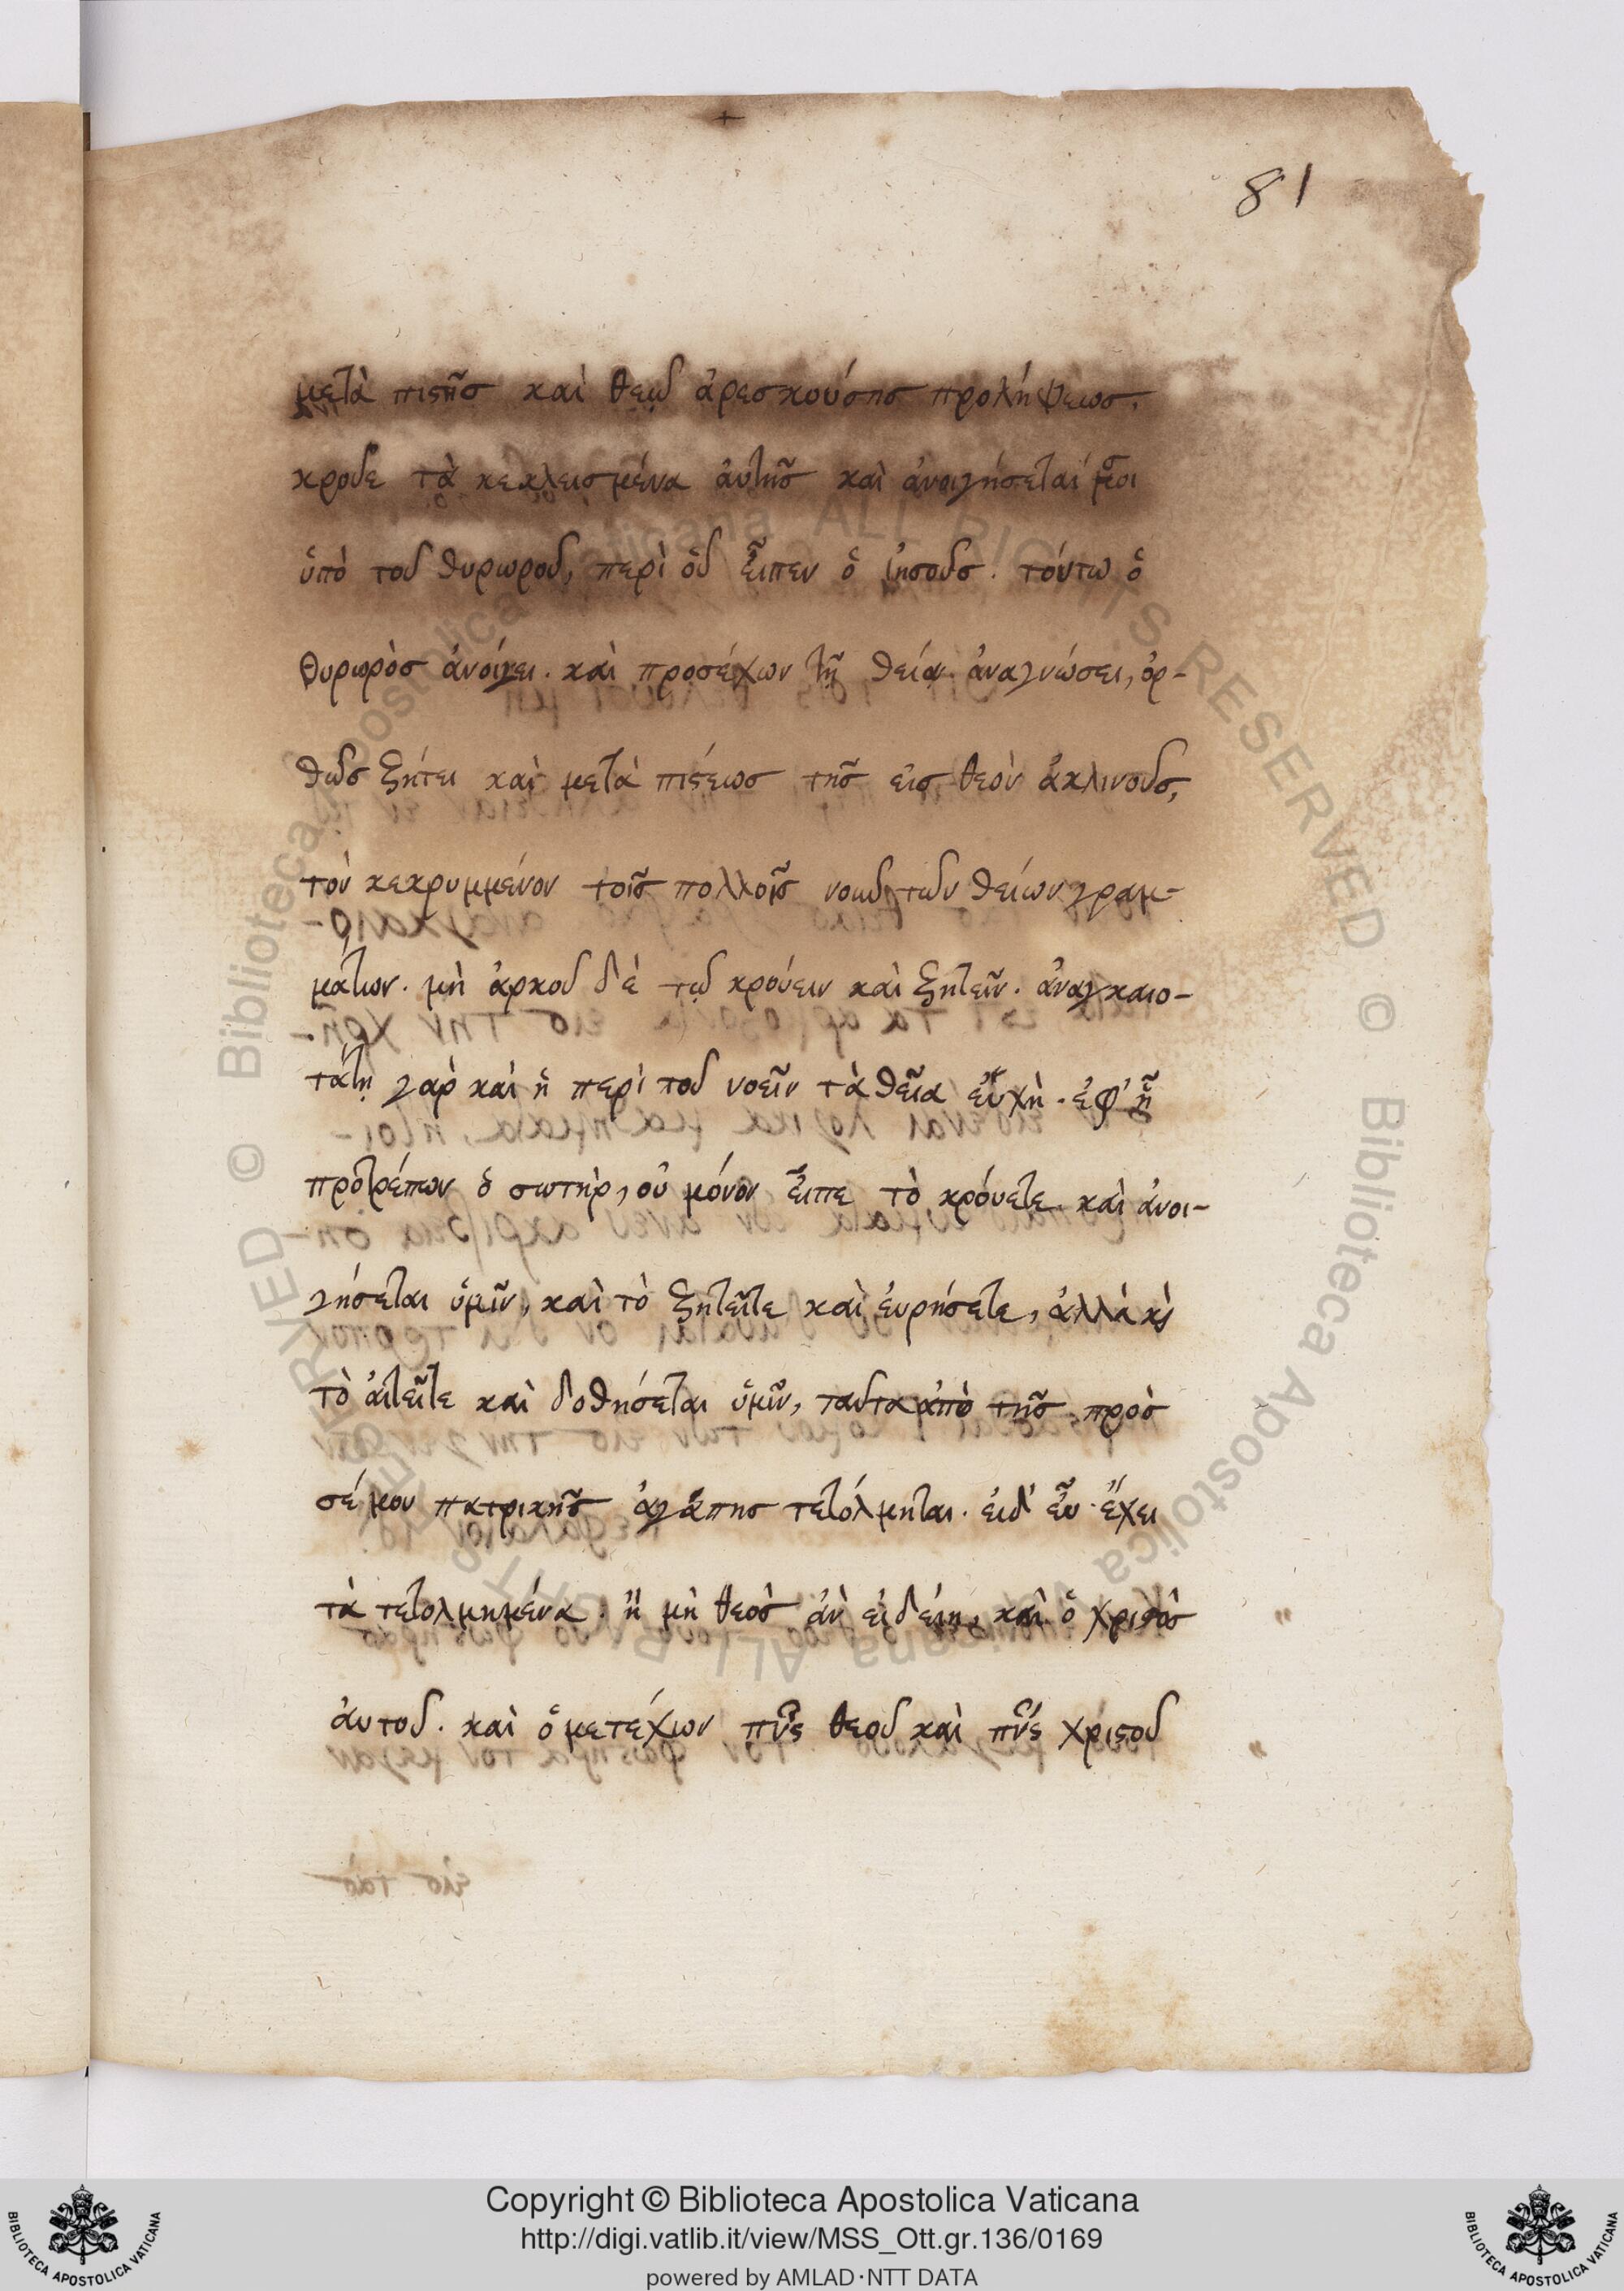 81
μετὰ πιςῆσ καὶ θεῷ ἀρεσκούσησ προλήψεωσ.
κροῦε τὰ κεκλεισμένα ἀυτῆσ καὶ ἀνοιγήσεταί σοι
ὑπὸ τοῦ θυρωροῦ, περὶ ὁῦ εἶπεν ὁ ἰησοῦσ. τούτω ὁ
θυρωρὸσ ἀνοίγει. καὶ προσέχων τῆ θεία ἀναγνώσει, ὀρ-
θῶσ ζήτει καὶ μετὰ πίςεωσ τῆσ εἰσ θεὸν ἀκλινοῦσ,
τὸν κεκρυμμένον τοῖσ πολλοῖσ νοῦν τῶν θείων γραμ-
μάτων. μὴ ἀρκοῦ δὲ τῷ κρόυειν καὶ ζητεῖν. ἀναγκαιο-
τάτη γὰρ καὶ ἡ περὶ τοῦ νοεῖν τὰ θεῖα εὐχὴ. ἐφ' ἣ
προτρέπων ὁ σωτὴρ, οὐ μόνον εἶπε τὸ κρόυετε καὶ ἀνοι-
γήσεται ὑμῖν, καὶ τὸ ζητεῖτε καὶ ἑυρήσετε, ἀλλὰ κὶ
τὸ ἀιτεῖτε καὶ δοθήσεται ὑμῖν, ταῦτα ἀπὸ τῆσ πρὸσ
σέ μου πατρικῆσ ἀγάπησ τετόλμηται. ἐιδ' εὖ ἔχει
τὰ τετολμημένα. ἢ μὴ θεὸσ ἀν ἐιδείη, καὶ ὁ χριςὸσ
ἀυτοῦ. καὶ ὁ μετέχων πν̅ς θεοῦ καὶ πν̅ς χριςοῦ
εἰσ τὰσ
Copyright © Biblioteca Apostolica Vaticana
http://digi.vatlib.it/view/MSS_Ott.gr.136/0169
powered by AMLAD·NTT DATA